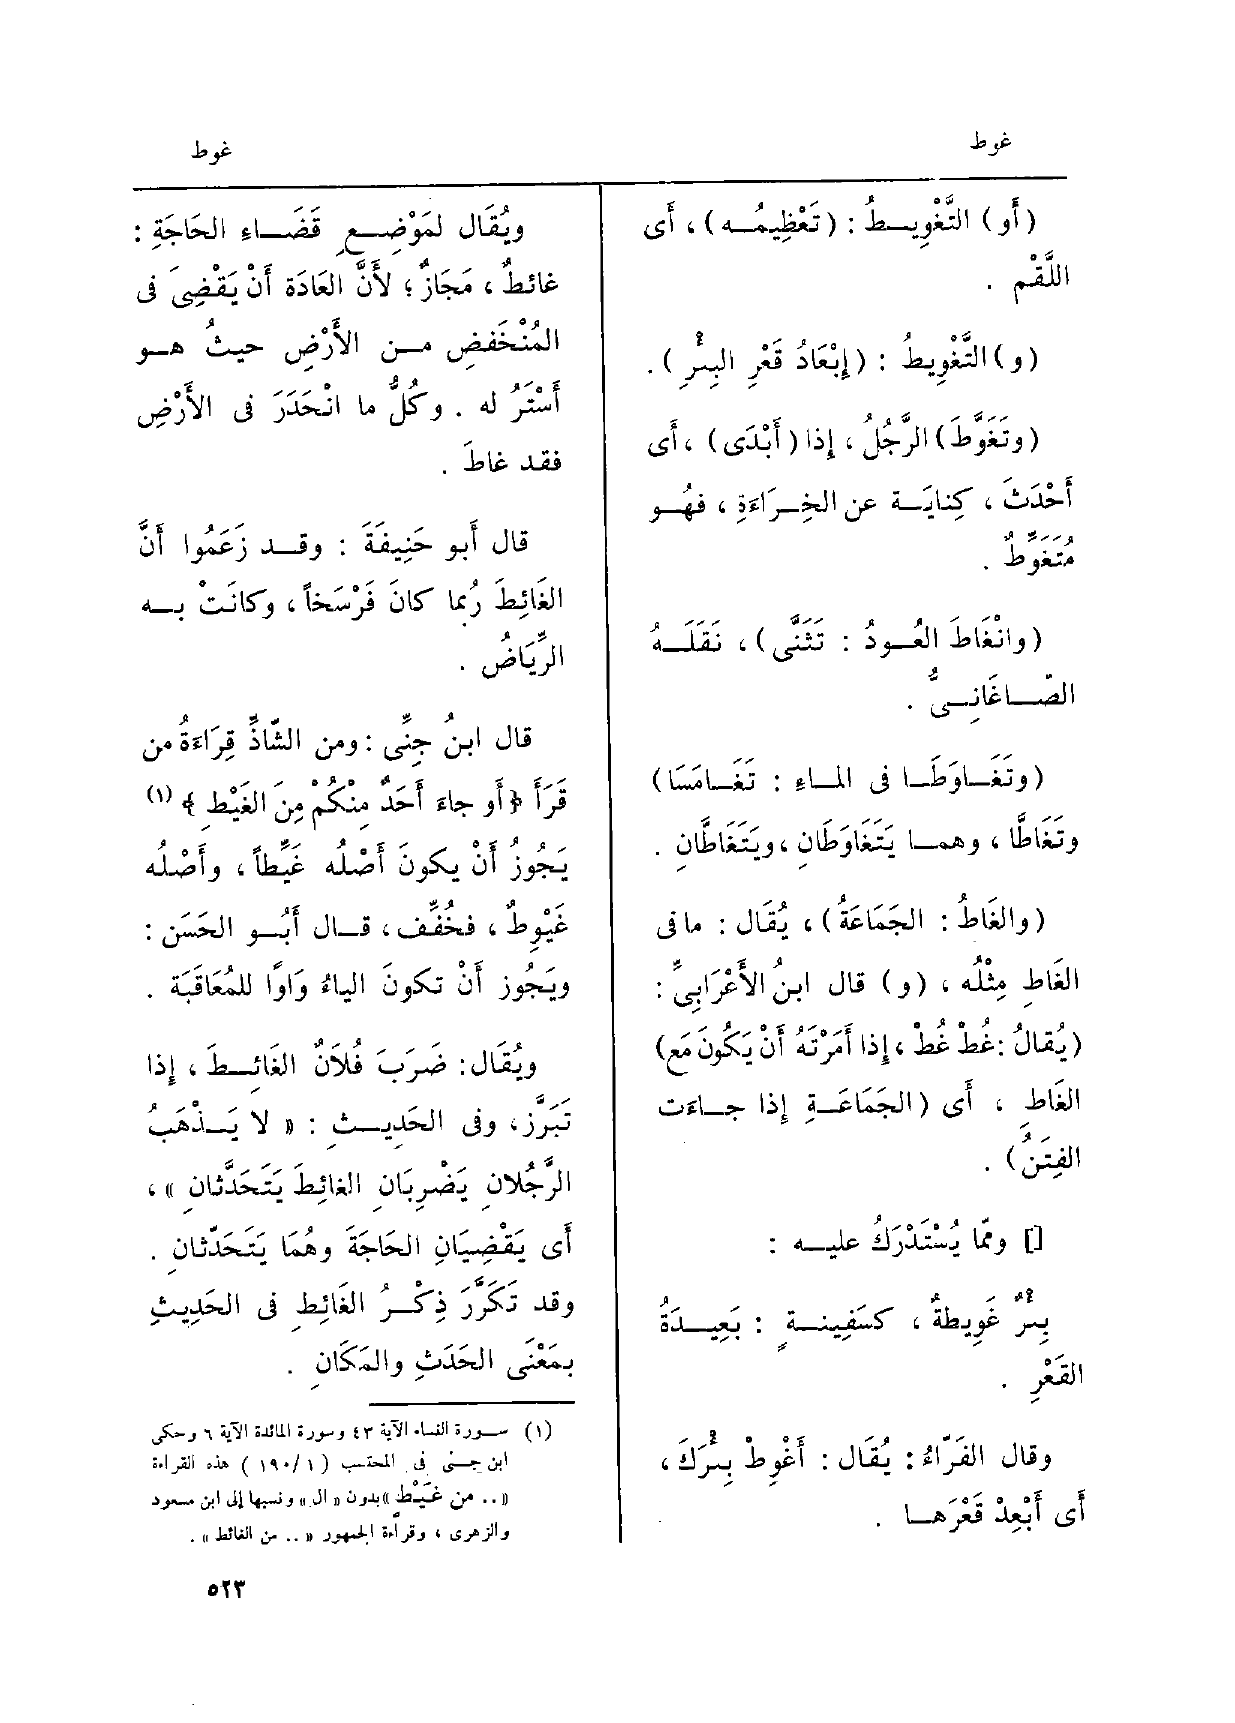 غوط
غوط
(أو) التَّغْوِيـطُ : (تَعْظِيمُـه) ، أَى
اللَّقْم .
(و) التَّغْوِيطُ : (إِبْعَادُ قَعْرِ البِئْرِ ) .
(وتَغَوَّطَ) الرَّجُلُ ، إِذا (أَبْدَى) ، أَى
أَحْدَثَ ، كِنايَـة عن الخِـرَاءَةِ ، فهُـو
مُتَغَوِّطٌ .
(وانْغَاطَ العُـودُ : تَثَنَّى) ، نَقَلَـهُ
الصّـاغَانِـىُّ .
(وتَغَـاوَطَـا فى المـاءِ : تَغَـامَسَا)
وتَغَاطَّا ، وهمـا يَتَغَاوَطَانِ ، ويَتَغَاطَّانِ .
(والغَاطُ : الجَمَاعَةُ) ، يُقَال : ما فى
الغَاطِ مِثْلُه ، (و) قال ابنُ الأَعْرَابِىِّ :
(يُقالُ : غُطْ غُطْ ، إِذا أَمَرْتَهُ أَنْ يَكُونَ مَع)
الغَاطِ ، أَى (الجَمَاعَـةِ إِذا جـاءَت
الفِتَنُ) .
[] وممّا يُسْتَدْرَكُ عليـه :
بِئْرٌ غَوِيطَةٌ ، كسَفِينـةٍ : بَعِيـدَةُ
القَعْرِ .
وقال الفَرّاءُ : يُقَال : أَغْوِطْ بِئْرَكَ ،
أَى أَبْعِدْ قَعْرَهـا .
ويُقَال لمَوْضِـعِ قَضَـاءِ الحَاجَةِ :
غائطٌ ، مَجَازٌ ؛ لأَنَّ العَادَة أَنْ يَقْضِىَ فى
المُنْخَفِضِ مـن الأَرْضِ حيثُ هـو
أَسْتَرُ له . وكُلُّ ما انْحَدَرَ فى الأَرْضِ
فقد غاطَ .
قال أَبو حَنِيفَةَ : وقـد زَعَمُوا أَنَّ
الغَائِطَ رُبما كانَ فَرْسَخاً ، وكانَتْ بـه
الرِّيَاضُ .
قال ابنُ جِنِّى : ومن الشّاذِّ قِرَاءَةُ من
قَرَأَ ﴿أَو جاءَ أَحَدٌ مِنْكُمْ مِنَ الغَيْطِ ﴾ (١)
يَجُوزُ أَنْ يكونَ أَصْلُه غَيِّطاً ، وأَصْلُه
غَيْوِطٌ ، فخُفِّف ، قـال أَبُـو الحَسَن :
ويَجُوز أَنْ تكونَ الياءُ وَاوًا للمُعَاقَبَة .
ويُقَال : ضَرَبَ فُلَانٌ الغَائِـطَ ، إِذا
تَبَرَّز ، وفى الحَدِيـثِ : « لا يَـذْهَبُ
الرَّجُلانِ يَضْرِبَانِ الغائِطَ يَتَحَدَّثانِ » ،
أَى يَقْضِيَانِ الحَاجَةَ وهُمَا يَتَحَدّثانِ .
وقد تَكَرَّرَ ذِكْـرُ الغَائِطِ فى الحَدِيثِ
بمَعْنَى الحَدَثِ والمَكَانِ .
(١) سـورة النساء الآية ٤٣ وسورة المائدة الآية ٦ وحكى
ابن جـنى فى المحتسب (١٩٠/١ ) هذه القراءة
« .. من غَيْطٍ » بدون « ال » ونسبها إلى ابن مسعود
والزهرى ، وقراءة الجمهور « .. من الغائط » .
٥٢٣